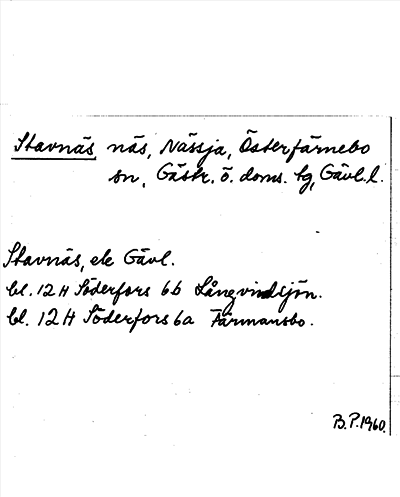 Stavnäs näs, Nässja, Österfärnebo
sn, Gästr. ö. doms. lg, Gävl. l.
Stavnäs, ek Gävl.
bl. 12 H Söderfors 6b Långvindsjön.
bl. 12 H Söderfors 6a Färmansbo.
B.P. 1960.